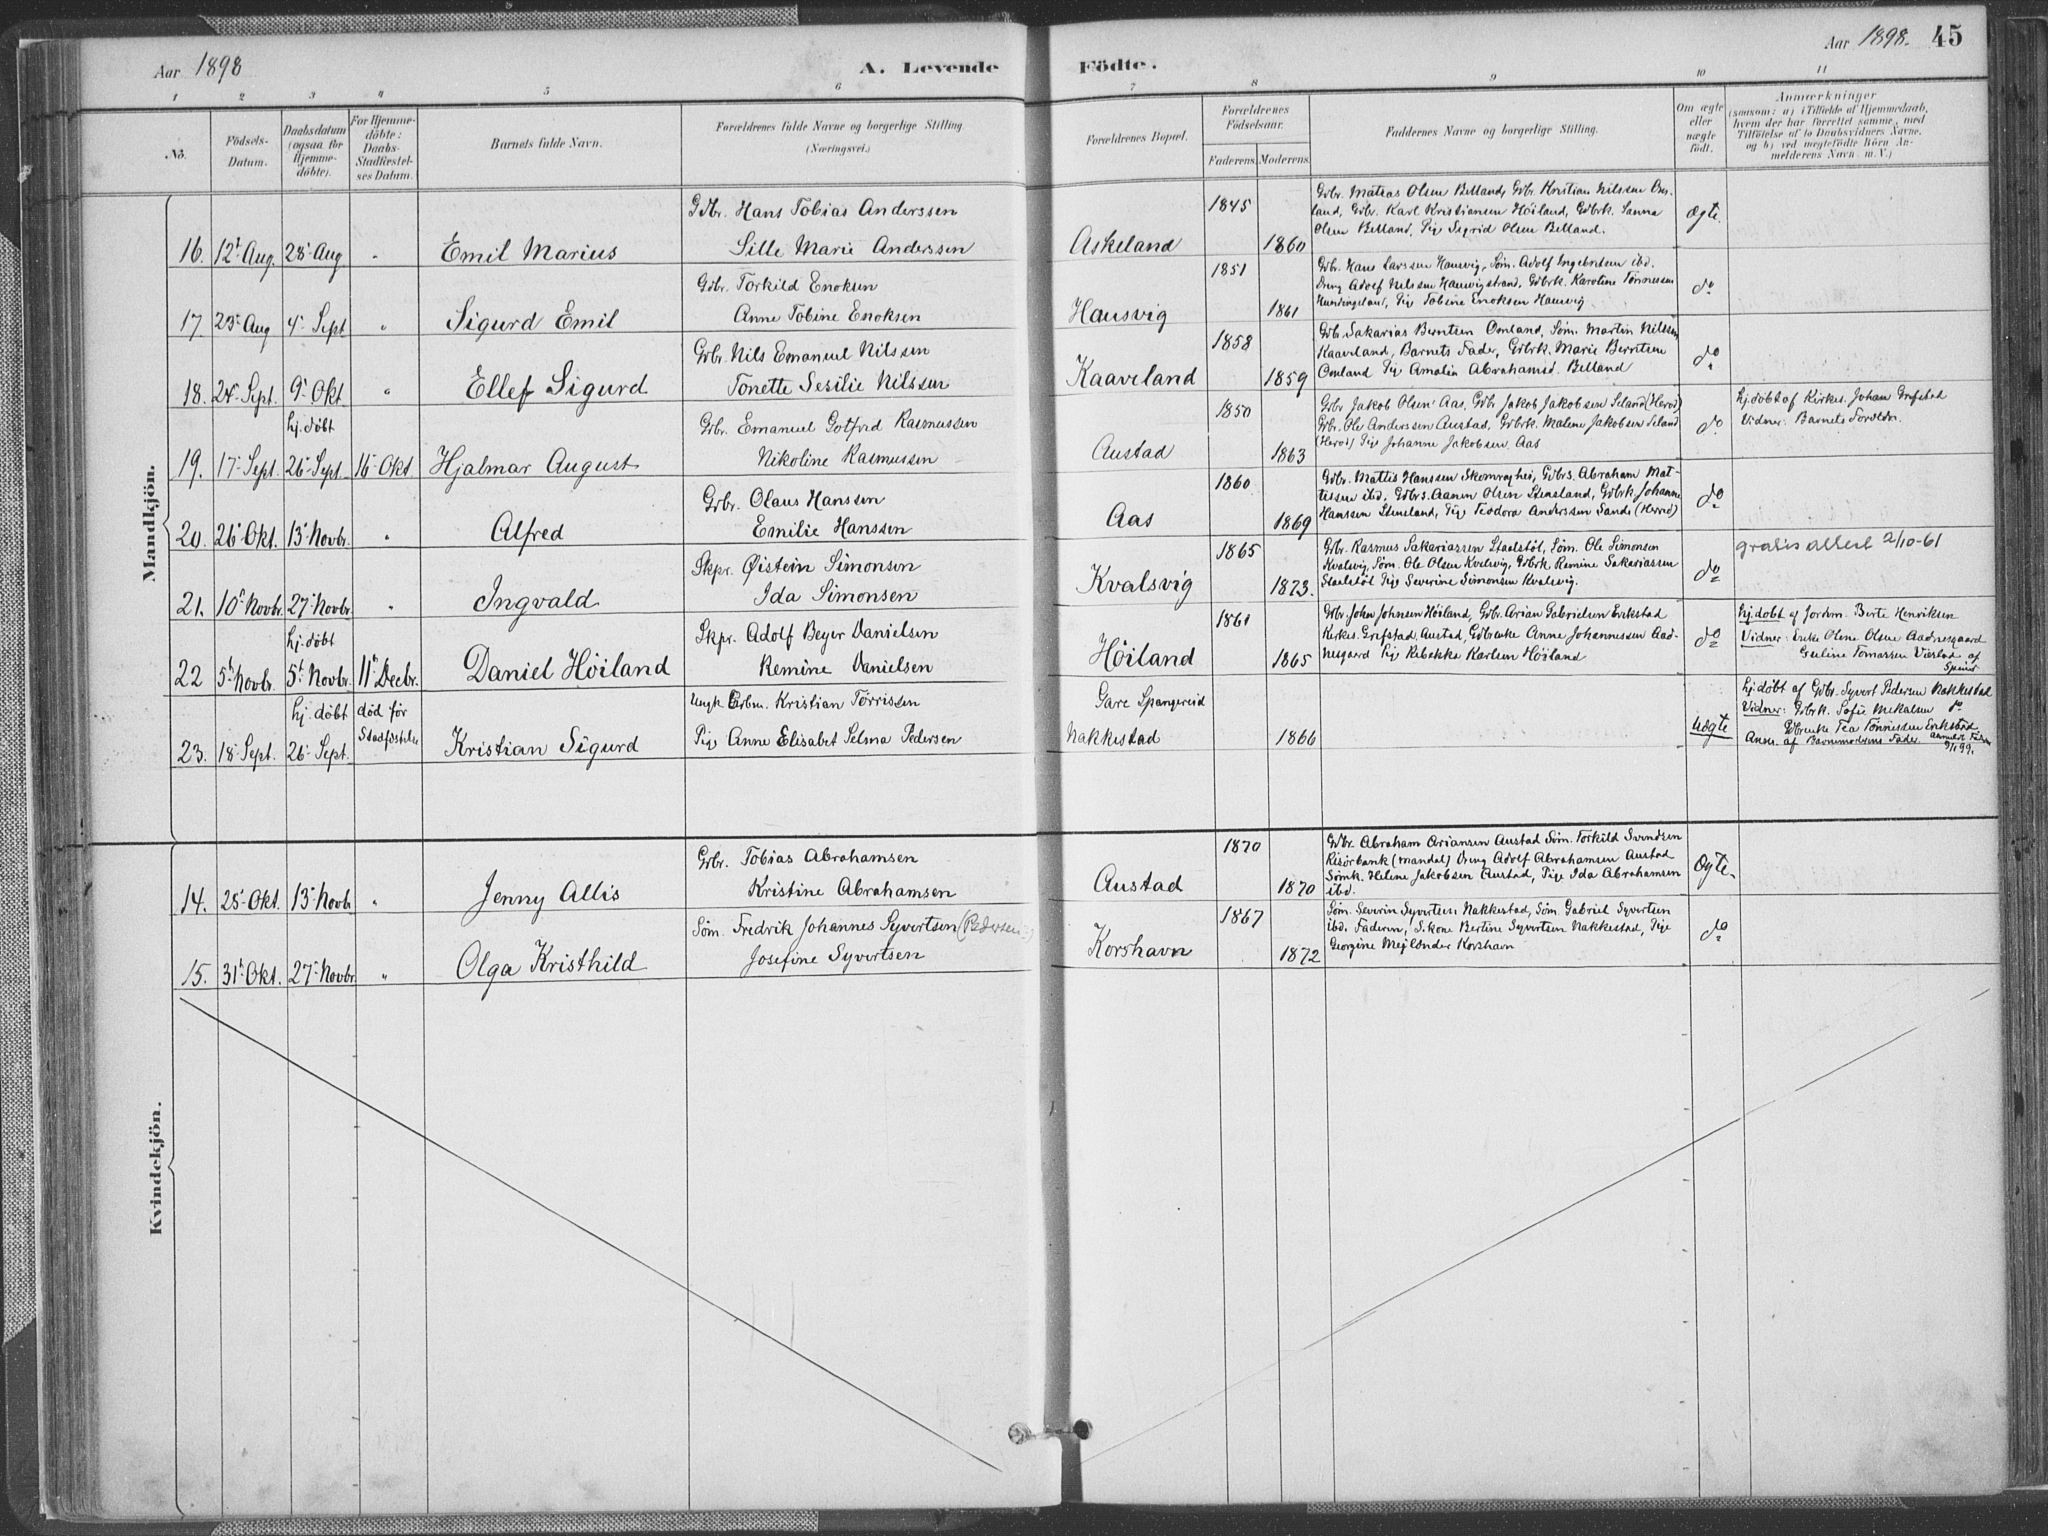 Aar 1898
A. Levende Födte.
Aar 1898. 45
1 2 3 4 5 6 7 8 9 10 11
No.
Födsels-Datum.
Daabsdatum (ogsaa for Hjemme-döbte).
For Hjemme-döbte: Daabs-Stadfæstel-ses Datum.
Barnets fulde Navn.
Forældrenes fulde Navne og borgerlige Stilling (Næringsvei.)
Forældrenes Bopæl.
Forældrenes Födselsaar.
Faderens. Moderens.
Faddernes Navne og borgerlige Stilling.
Om ægte eller uægte födt.
Anmærkninger
(saasom: a) i Tilfælde af Hjemmedaab,
hvem der har forrettet samme, med
Tilföielse af to Daabsvidners Navne.
og b) ved uegtefödte Börn An-
melderens Navn m. V.)
Mandkjön.
Gdbr. Hans Tobias Anderssen 1845
Gdbr. Matias Olsen Belland, Gdbr. Kristian Nilssen Om-
land, Gdbr. Karl Kristiansen Höiland, Gdbrk. Sanna
Olsen Belland, Pige Sigrid Olsen Belland.
16. 12t Aug. 28 Aug " Emil Marius Sille Marie Anderssen Askeland 1860 Ægte.
Gdbr. Torkild Enoksen 1851
Gdbr. Hans Larssen Hausvig, Söm. Adolf Ingebretsen ibd.
Dreng Adolf Nilssen Hausvigstrand, Gdbrk. Karoline Tönnessen
Hundingsland, Pige Tobine Enoksen Hausvig
17. 23 Aug 4 Sept " Sigurd Emil Anne Tobine Enoksen Hausvig 1861 do
Gdbr. Nils Emanuel Nilssen 1858
Gdbr. Sakarias Berntsen Omland, Söm. Martin Nilssen
Kaaveland, Barnets Fader, Gdbrk. Marie Berntsen
Omland Pige Amalia Abrahamsd. Belland
18. 24 Sept. 9 Okt. " Ellef Sigurd Tonette Sesilie Nilssen Kaaveland 1859 do
hj. döbt
Gdbr. Emanuel Gotfred Rasmussen 1850
Gdbr Jakob Olsen Aas, Gdbr Jakob Jakobsen Seland (Herod)
Gdbr. Ole Anderssen Austad, Gdbrk. Malene Jakobsen Seland
(Herod) Pige Johanne Jakobsen Aas
hj. döbt af Kirkes. Johan Grefstad
Vidner: Barnets Forældre.
19. 17 Sept. 26 Sept. 16 Okt. Hjalmar August Nikoline Rasmussen Austad 1863 do
Gdbr. Olaus Hanssen 1860
Gdbr. Mattis Hanssen Skomraghei, Gdbrs. Abraham Mat-
tissen ibd, Gdbrs. Aanen Olsen Stensland, Gdbrk. Johanne
Hanssen Stensland, Pige Teodora Anderssen Sande (Herred)
20. 26 Okt. 13 Novbr. " Alfred Emilie Hanssen Aas 1869 do
Skpr. Øistein Simonsen 1865
Gdbr. Rasmus Sakariassen Staalstöl, Söm. Ole Simonsen
Kvalsvig, Söm. Ole Olsen Kvalsvig, Gdbrk. Remine Sakariassen
Staalstöl Pige Severine Simonsen Kvalsvig.
gratis attest 2/10-61
21. 10 Novbr. 27 Novbr. " Ingvald Ida Simonsen Kvalsvig 1873. do
hj. döbt
Skpr. Adolf Beyer Danielsen 1861
Gdbr. John Johnsen Höiland, Gdbr. Arian Gabrielsen Erikstad
Kirkes. Grefstad, Austad, Gdbrenke Anne Johannessen Aad-
nesgaard Pige Rebekke Karlsen Höiland
hj. döbt af Jordm. Berte Henriksen
Vidner: Enke Oline Olsen Aadnesgaard
Geline Tomassen Vårstad af
Spind
22 5t Novbr. 5t Novbr. 11t Decbr. Daniel Höiland Remine Danielsen Höiland 1865 do
hj. döbt död för Stadfæstelse
Ungk Kristian Törrissen
Gare Spangereid
hj. döbt af Gdbr. Syvert Pedersen Nakkestad
Vidner: Gdbrk. Sofie Mekalsen do
Gdbrenke Tea Tönnessen Erikstad
Anm. af Barnemoderens Fader.
9/1 99.
23. 18 Sept. 26 Sept. Kristian Sigurd Pige Anne Elisabet Selma Pedersen Nakkestad 1866 Uægte
Kvindekjön.
Gdbr. Tobias Abrahamsen 1870
Gdbr Abraham Ariansen Austad Söm. Torkild Svendsen
Risörbank (Mandal) Dreng Adolf Abrahamsen Austad
Sömk. Helene Jakobsen Austad, Pige Ida Abrahamsen
ibd.
14. 25 Okt. 13 Novb. " Jenny Allis Kristine Abrahamsen Austad 1870 Ægte.
Söm. Fredrik Johannes Syvertsen (Pedersen) 1867
Söm. Severin Syvertsen Nakkestad, Söm. Gabriel Syvertsen
ibd. Faderen, S.kone Bertine Syvertsen Nakkestad, Pige
Georgine Mejlænder Korshavn
15. 31t Okt. 27 Novbr. " Olga Kristhild Josefine Syvertsen Korshavn 1872 do